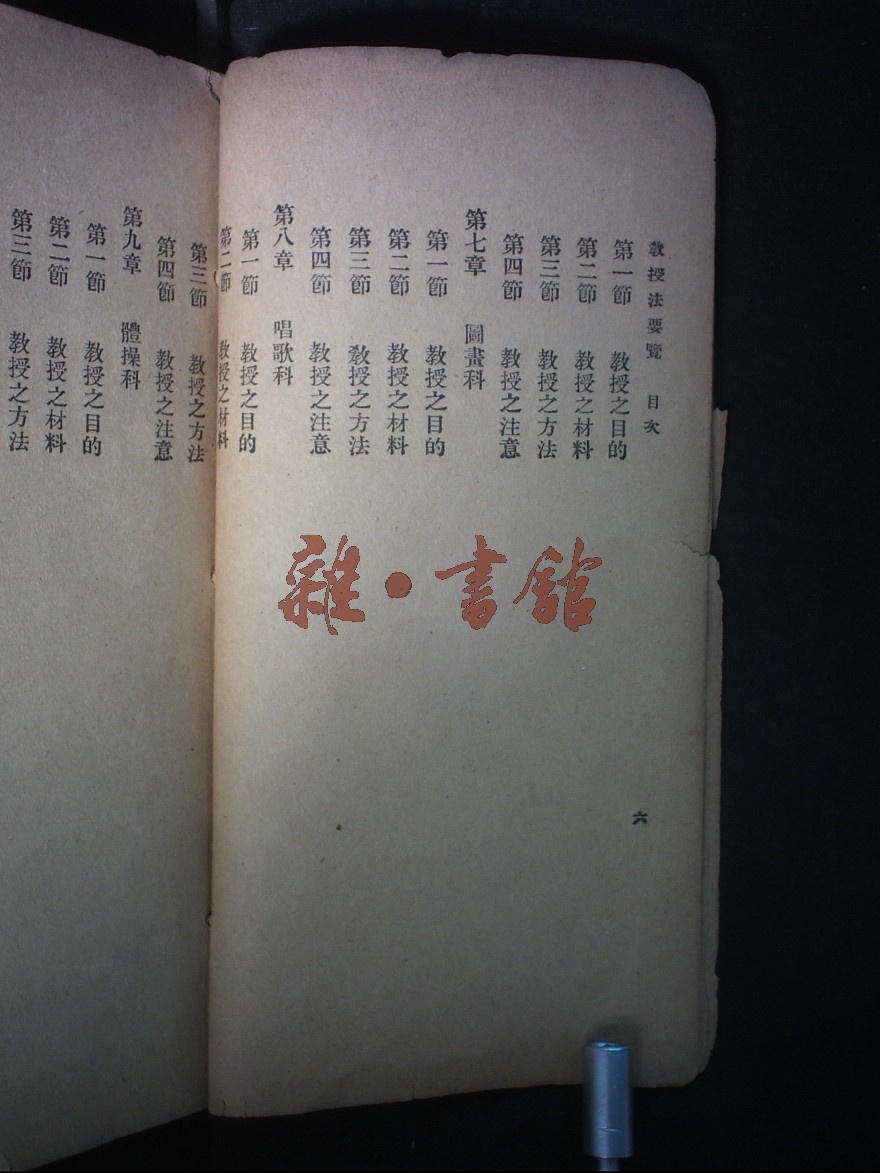 教授法要覽 目次
第一節 教授之目的
第二節 教授之材料
第三節 教授之方法
第四節 教授之注意
第七章 圖畫科
第一節 教授之目的
第二節 教授之材料
第三節 教授之方法
第四節 教授之注意
第八章 唱歌科
第一節 教授之目的
第二節 教授之材料
六
第三節 教授之方法
第四節 教授之注意
第九章 體操科
第一節 教授之目的
第二節 教授之材料
第三節 教授之方法
雜·書館